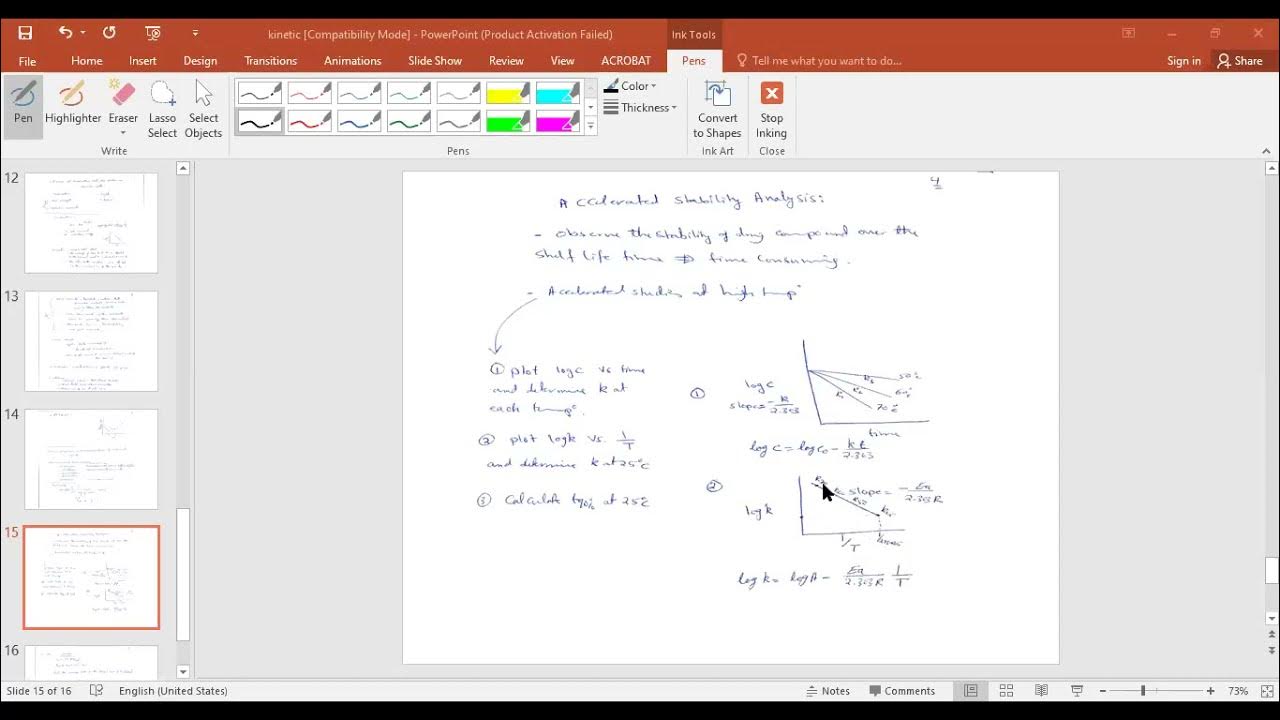 kinetic [Compatibility Mode] - PowerPoint (Product Activation Failed)
Ink Tools
File Home Insert Design Transitions Animations Slide Show Review View ACROBAT Pens Tell me what you want to do... Sign in Share
Pen Highlighter Eraser Lasso Select Select Objects
Color
Thickness
Convert to Shapes
Stop Inking
Write Pens Ink Art Close
12
13
14
15
16
4
Accelerated Stability Analysis:
- Observe the stability of drug compound over the
shelf life time ⇒ time consuming.
- Accelerated studies at high temp°
① plot log c vs time
and determine k at
each temp°.
② plot log k vs. 1/T
and determine k at 25°C
③ Calculate t90% at 25°C
①
log c
slope = -k/2.303
50°C
60°C
70°C
time
log C = log C₀ - kt/2.303
②
log k
slope = -Ea/2.303R
1/T
log k = log A - Ea/2.303R 1/T
Slide 15 of 16 English (United States) Notes Comments 73%